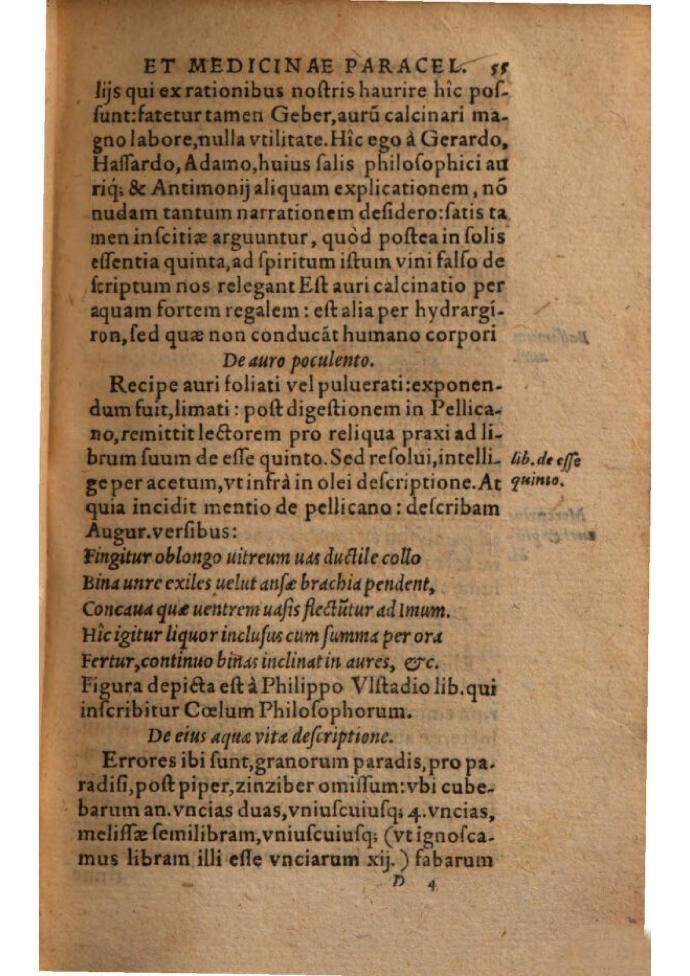 ET MEDICINAE PARACEL. 55
lijs qui ex rationibus noſtris haurire hîc poſ-
ſunt:fatetur tamen Geber,aurū calcinari ma-
gno labore,nulla vtilitate.Hîc ego à Gerardo,
Haſſardo, Adamo,huius ſalis philoſophici au
riq; & Antimonij aliquam explicationem, nō
nudam tantum narrationem deſidero:ſatis ta
men inſcitiæ arguuntur, quòd poſtea in ſolis
eſſentia quinta,ad ſpiritum iſtum vini falſo de
ſcriptum nos relegant Eſt auri calcinatio per
aquam fortem regalem : eſt alia per hydrargi-
ron,ſed quæ non conducāt humano corpori
De auro poculento.
Recipe auri foliati vel puluerati:exponen-
dum fuit,limati : poſt digeſtionem in Pellica-
no,remittit lectorem pro reliqua praxi ad li-
brum ſuum de eſſe quinto. Sed reſolui,intelli-
ge per acetum,vt infrà in olei deſcriptione. At
quia incidit mentio de pellicano : deſcribam
Augur.verſibus:
lib. de eſſe
quinto.
Fingitur oblongo uitreum uas ductile collo
Bina unre exiles uelut anſæ brachia pendent,
Concaua quæ uentrem uaſis flectūtur ad Imum.
Hîc igitur liquor incluſus cum ſumma per ora
Fertur,continuo binas inclinat in aures, &c.
Figura depicta eſt à Philippo Vlſtadio lib.qui
inſcribitur Cœlum Philoſophorum.
De eius aqua vitæ deſcriptione.
Errores ibi ſunt,granorum paradis,pro pa-
radiſi,poſt piper,zinziber omiſſum:vbi cube-
barum an.vncias duas,vniuſcuiuſq; 4.vncias,
meliſſæ ſemilibram,vniuſcuiuſq; (vt ignoſca-
mus libram illi eſſe vnciarum xij.) fabarum
D 4